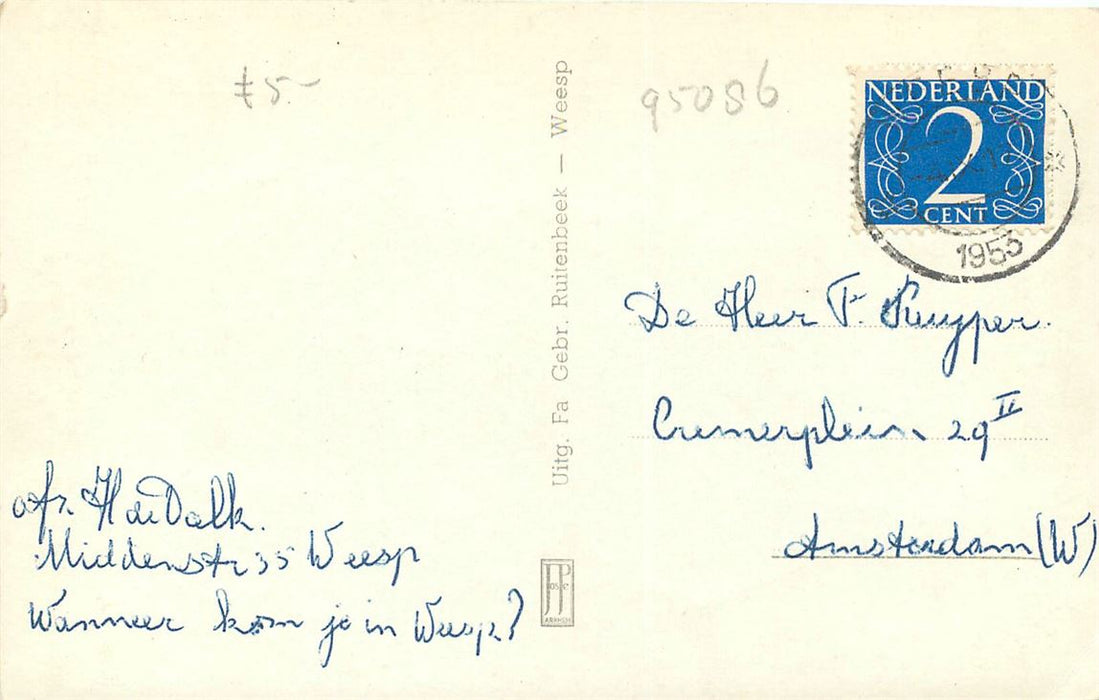 £5.-
95086
NEDERLAND
2
CENT
1953
Uitg. Fa Gebr. Ruitenbeek — Weesp
De Heer F. Kuyper.
Cremerplein 29 II
Amsterdam (W)
afz. H de Dalk.
Middenstr 35 Weesp
Wanneer kom je in Weesp?
JP
ARNHEM